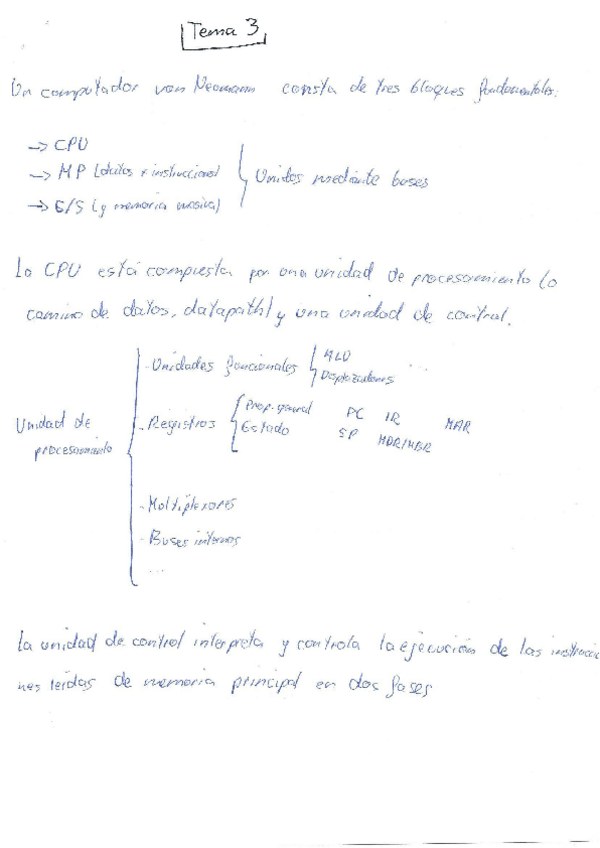 Tema 3
Un computador von Neumann consta de tres bloques fundamentales:
→ CPU
→ MP (datos e instrucciones)
→ E/S (y memoria masiva)
Unidos mediante buses
La CPU está compuesta por una unidad de procesamiento (o
camino de datos, datapath) y una unidad de control.
Unidad de
procesamiento
- Unidades funcionales
ALU
Desplazadores
...
- Registros
Prop. general
Estado
PC IR MAR
SP MDR/MBR
- Multiplexores
- Buses internos
...
La unidad de control interpreta y controla la ejecución de las instruccio
nes leídas de memoria principal en dos fases